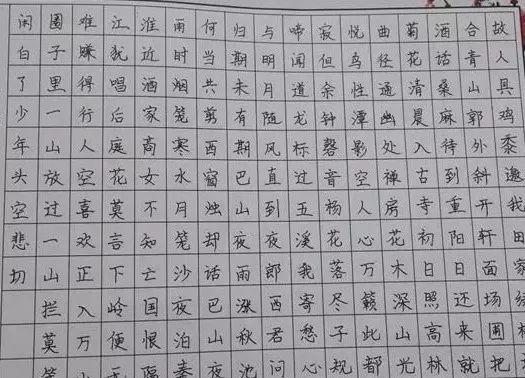 故人具鸡黍邀我田家绿树
合青山郭外斜开轩面场圃把
酒话桑麻待到重阳日还来就
菊花清晨入古寺初日照高林
曲径通幽处禅房花木深山光
悦鸟性潭影空人心万籁此都
寂但余钟磬音杨花落尽子规
啼闻道龙标过五溪我寄愁心
与明月随风直到夜郎西君问
归期未有期巴山夜雨涨秋池
何当共剪西窗烛却话巴山夜
雨时烟笼寒水月笼沙夜泊秦
淮近酒家商女不知亡国恨隔
江犹唱后庭花莫言下岭便无
难赚得行人空喜欢正入万山
圈子里一山放过一山拦莫
闲白了少年头空悲切